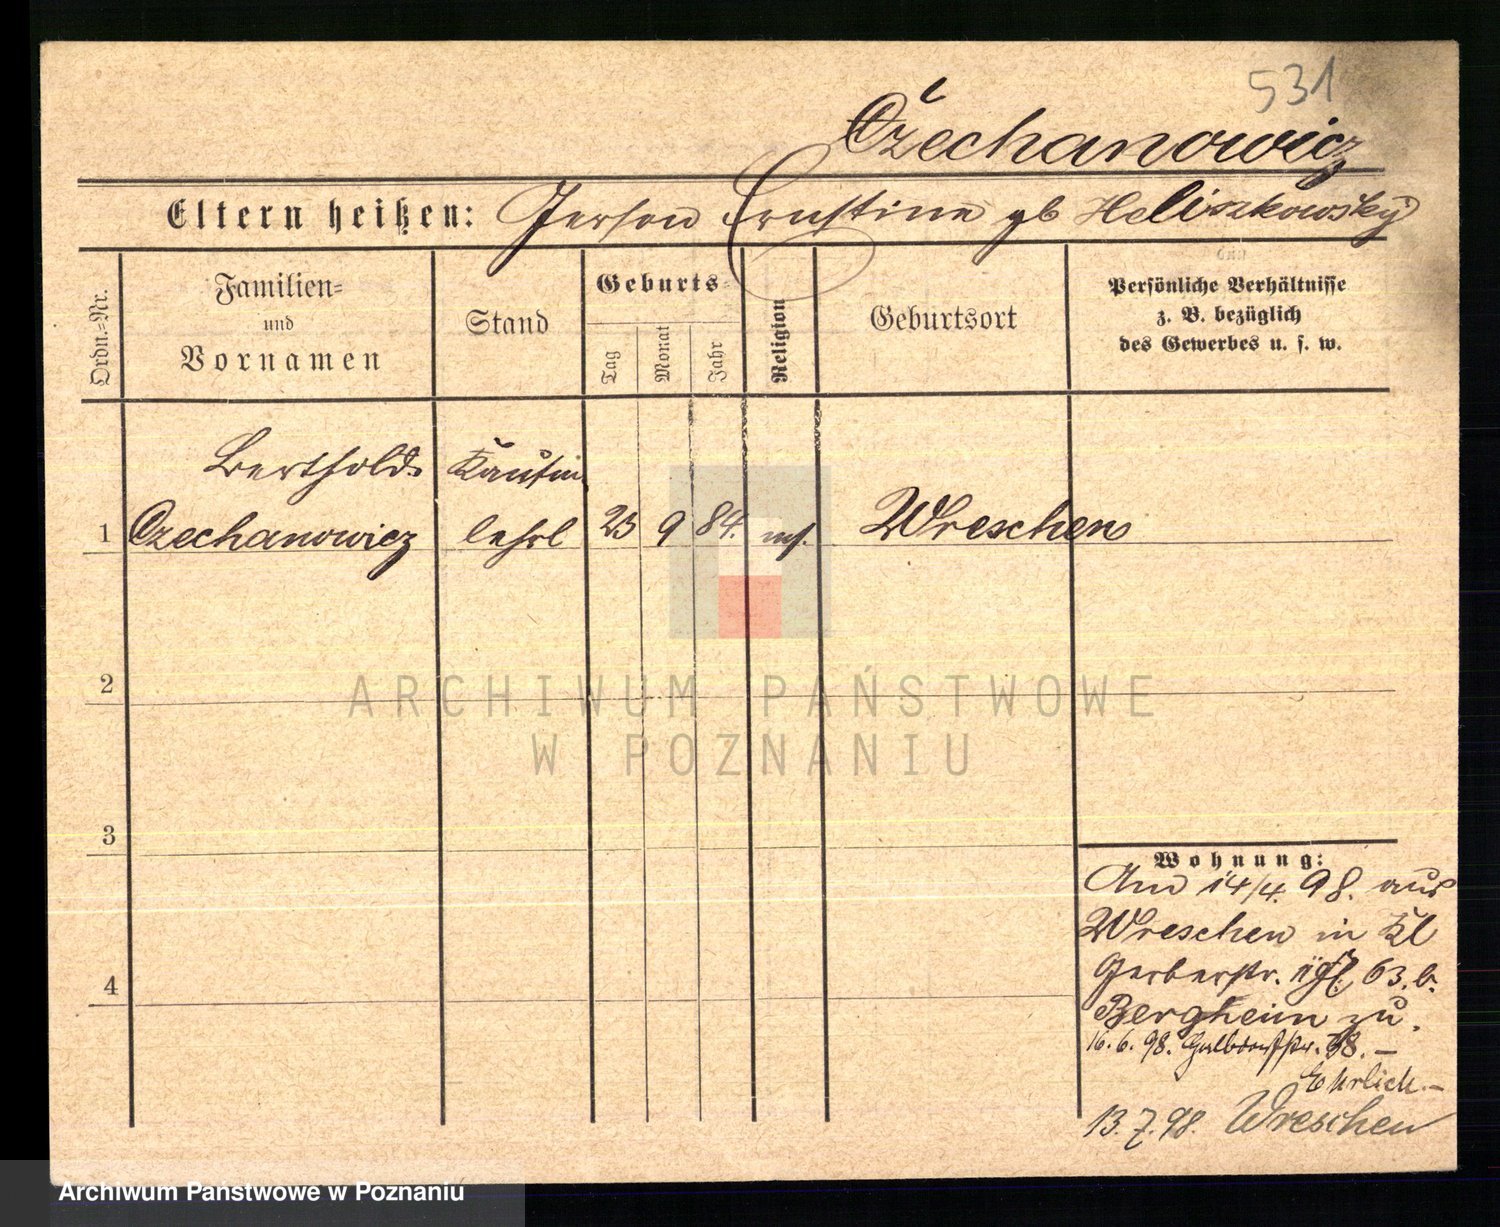 531
Czechanowicz
Eltern heißen: Jerson Ernstine gb Heliszkowsky
und
Ordn.=Nr.
Familien=
und
Vornamen
Stand
Geburts=
Tag
Monat
Jahr
Religion
Geburtsort
Persönliche Verhältnisse
z. B. bezüglich
des Gewerbes u. s. w.
Berthold
Kaufm
1 Czechanowicz lehrl 23 9 84. mos. Wreschen
2
ARCHIWUM PAŃSTWOWE
W POZNANIU
3
Wohnung:
Am 14/4. 98. aus
Wreschen in Kl
Gerberstr. 63. b.
Bergheim zu.
16.6.98. 38. –
Ehrlich. –
4
13.7.98. Wreschen
Archiwum Państwowe w Poznaniu